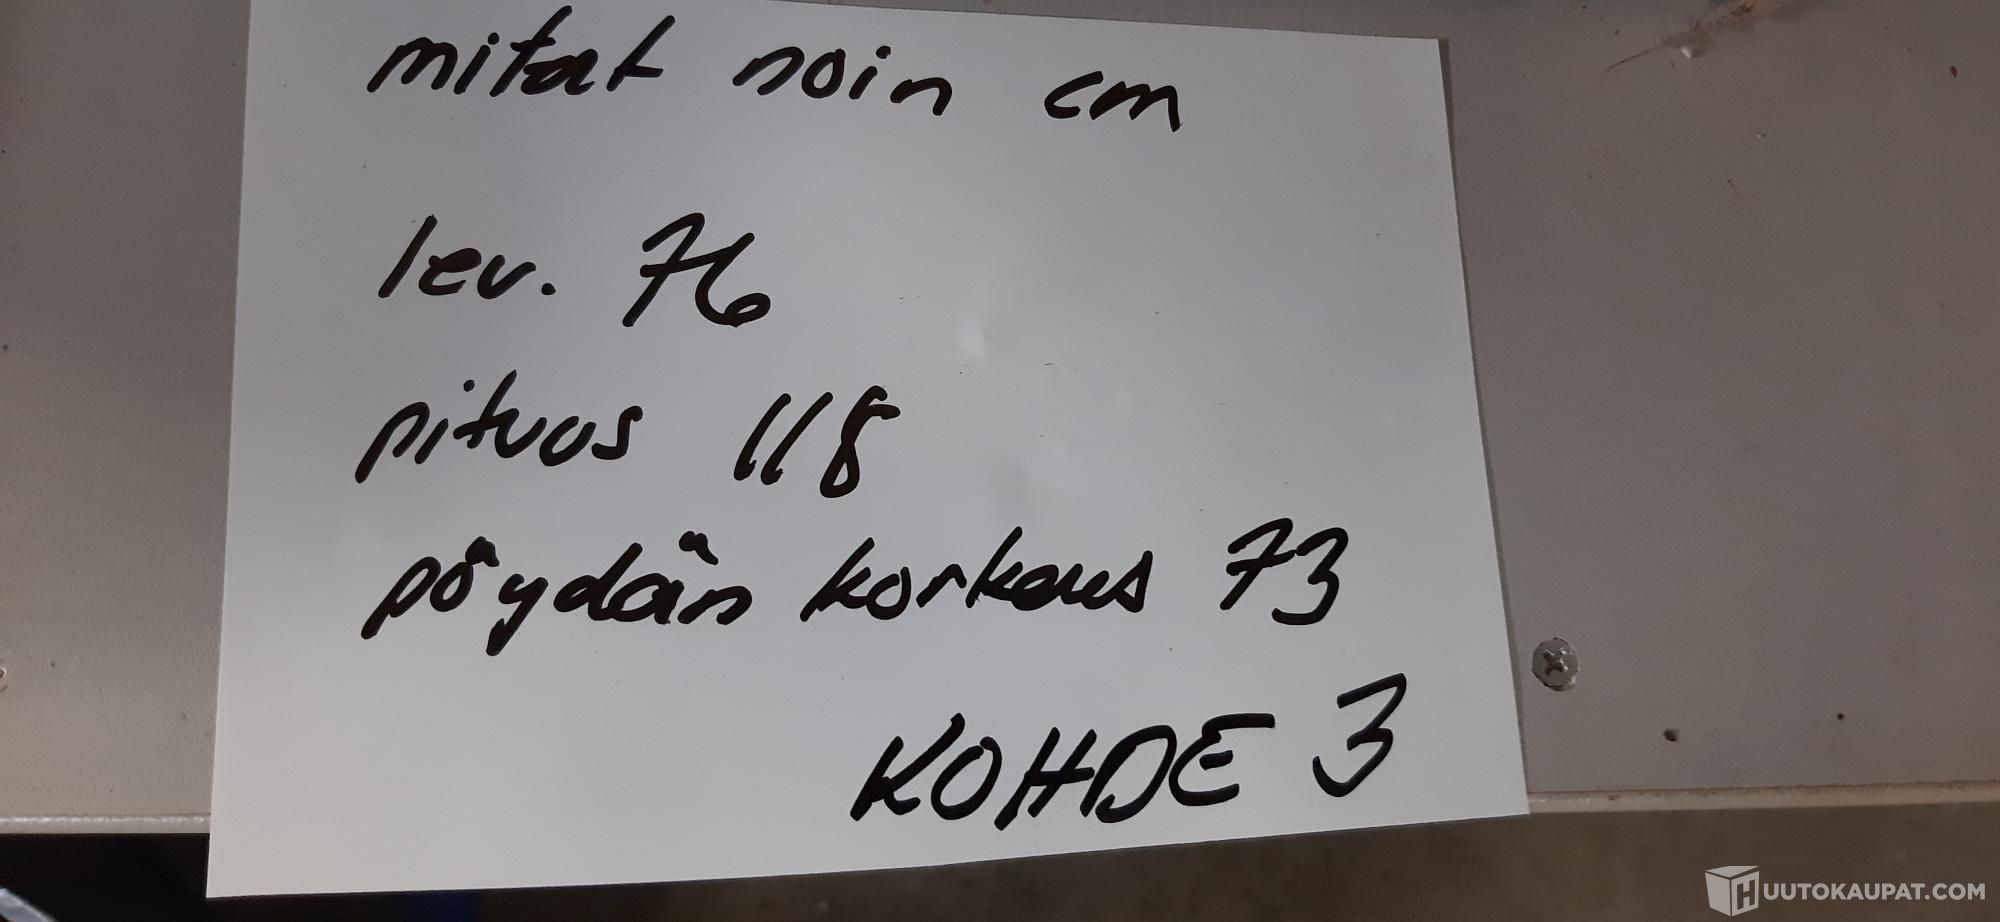 mitat noin cm
lev. 76
pituus 118
pöydän korkeus 73
KOHDE 3
HUUTOKAUPAT.COM